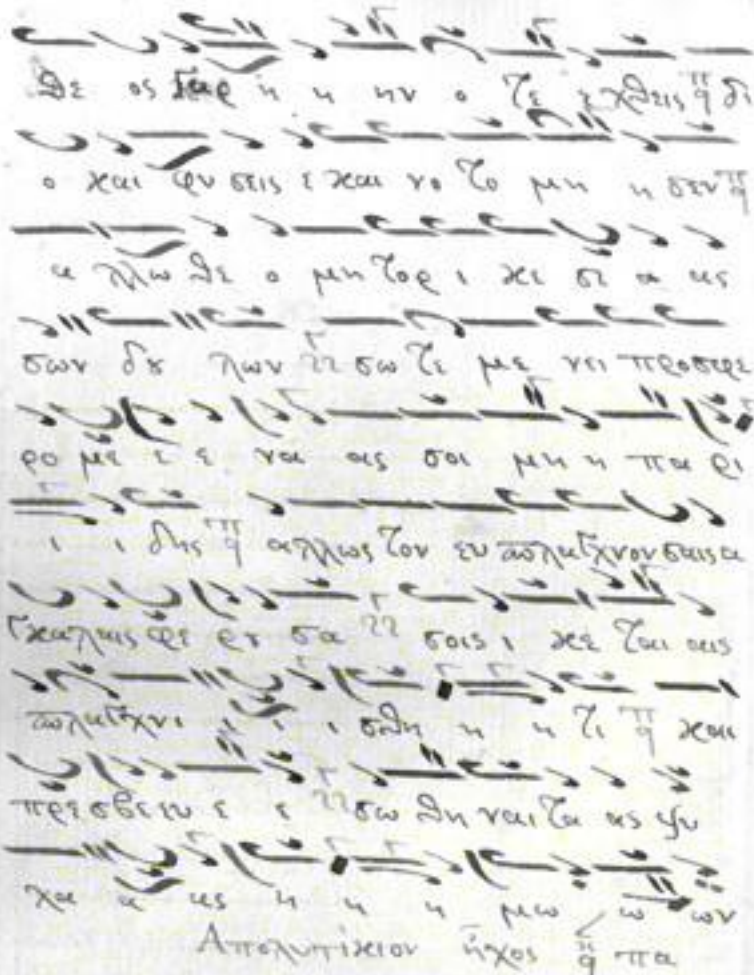 θε ος γαρ η η ην ο τε ε χθεις δι
ο και φυ σεις ε και νο το μη η δεν
α λλω θε ο μη τορ ι κε σι α ας
σων δȣ λων σω τε με νει προσφε
ρο με ε ε να ας σοι μη η πα ρι
ι ι δης αλλως τον ευ σπλαγχνον σαις α
γκαλαις φε ρȣ σα σοις ι κε ται αις
σπλαγχνι ι ι ι σθη η η τι και
πρε σβευ ε ε σω θη ναι τα ας ψυ
χα α ας η η η μω ω ων
Απολυτίκιον ήχος πα